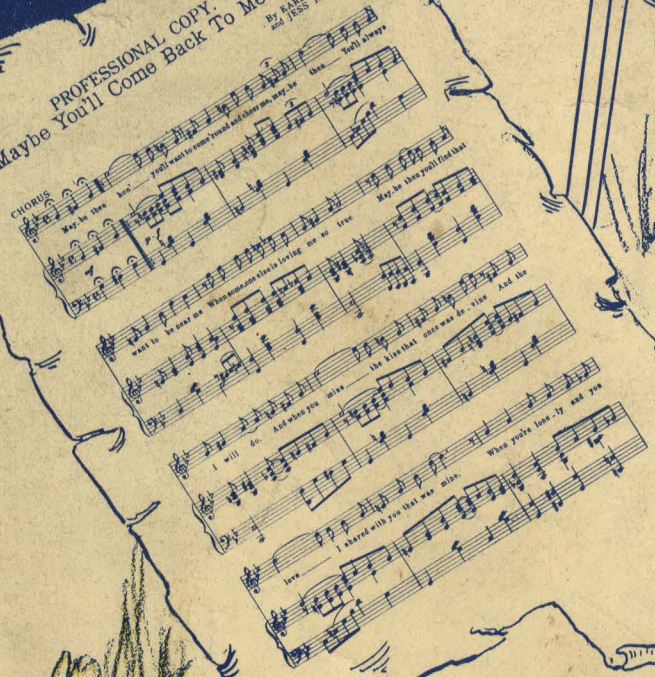 PROFESSIONAL COPY.
Maybe You'll Come Back To Me
By EAR
and JESS
CHORUS
May.be then hon' you'll want to come 'round and cheer me, may.be then You'll always
want to be near me When some.one else is loving me so true May.be then you'll find that
I will do. And when you miss the kiss that once was de.vine And the
love I shared with you that was mine. When you're lone.ly and you